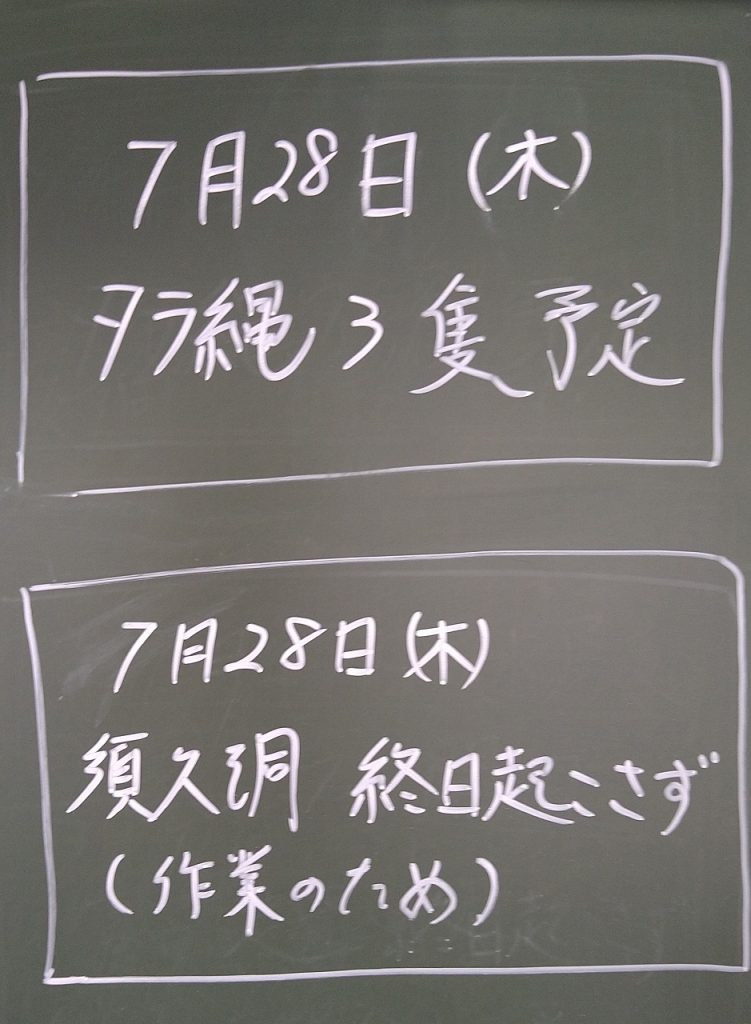 7月28日(木)
タラ縄 3隻予定
7月28日(木)
須久洞 終日起こさず
(作業のため)